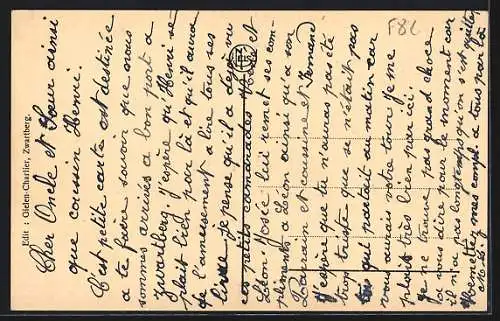 F8C
Edit : Gielen-Chartier, Zwartberg.
Cher Oncle et Sœur ainsi
que cousin Henri.
C'est petite carte est destinée
a te faire savoir que nous
sommes arrivés a bon port a
Zwartberg. J'espère qu'Henri se
plait bien par là et qu'il aura
de l'amusement a lire tous ses
livre je pense qu'il a déjà
ces petits camarades et
Léon. Josée lui remet ses com-
pliments a Léon ainsi qu'a son
Parrain et cousine et Fernand
J'espère que tu n'auras pas été
trop triste que se n'était pas
qui partait du matin car
vous aurais votre tour je me
plait très bien par ici.
Je ne trouve pas grand chose
a vous dire pour le moment car
il n'a pas longtemps qu'on s'est quitter
Remettez mes compl. a tous par là